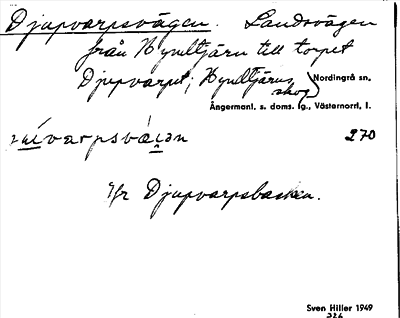 Djupvarpsvägen. Landsvägen
från Hyndtjärn till torpet
Djupvarpet; Hyndtjärns skog) Nordingrå sn,
Ångermanl. s. doms. lg., Västernorrl. l.
varpsvä 270
Jfr Djupvarpsbacken.
Sven Hiller 1949
326